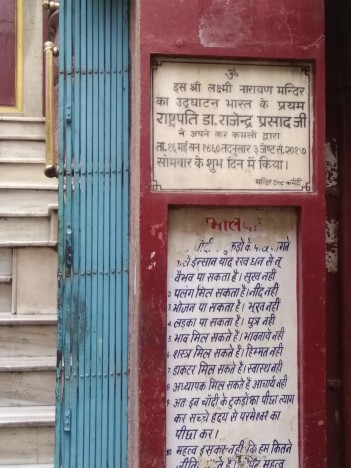 ॐ
इस श्री लक्ष्मी नारायण मन्दिर
का उद्घाटन भारत के प्रथम
राष्ट्रपति डा. राजेन्द्र प्रसाद जी
ने अपने कर कमलों द्वारा
ता. १६ मई सन १९६० तदनुसार ३ जेष्ट सं. २०१७
सोमवार के शुभ दिन में किया।
मन्दिर ट्रस्ट कमेटी
के
इन्सान याद रख धन से तू
वैभव पा सकता है। सुख नहीं
२ पलंग मिल सकता है। नींद नहीं
३ भोजन पा सकता है। भूख नहीं
४ लड़का पा सकता है। पुत्र नहीं
५ भाव मिल सकते है। भावनायें नहीं
६ शस्त्र मिल सकते है। हिम्मत नहीं
७ डाक्टर मिल सकते है। स्वास्थ नहीं
८ अध्यापक मिल सकते है आचार्य नहीं
९ अतः इन चाँदी के टुकड़ो का पीछा त्याग
कर सच्चे हृदय से परमेश्वर का
पीछा कर।
१० महत्व इसका नहीं कि हम कितने
महत्व